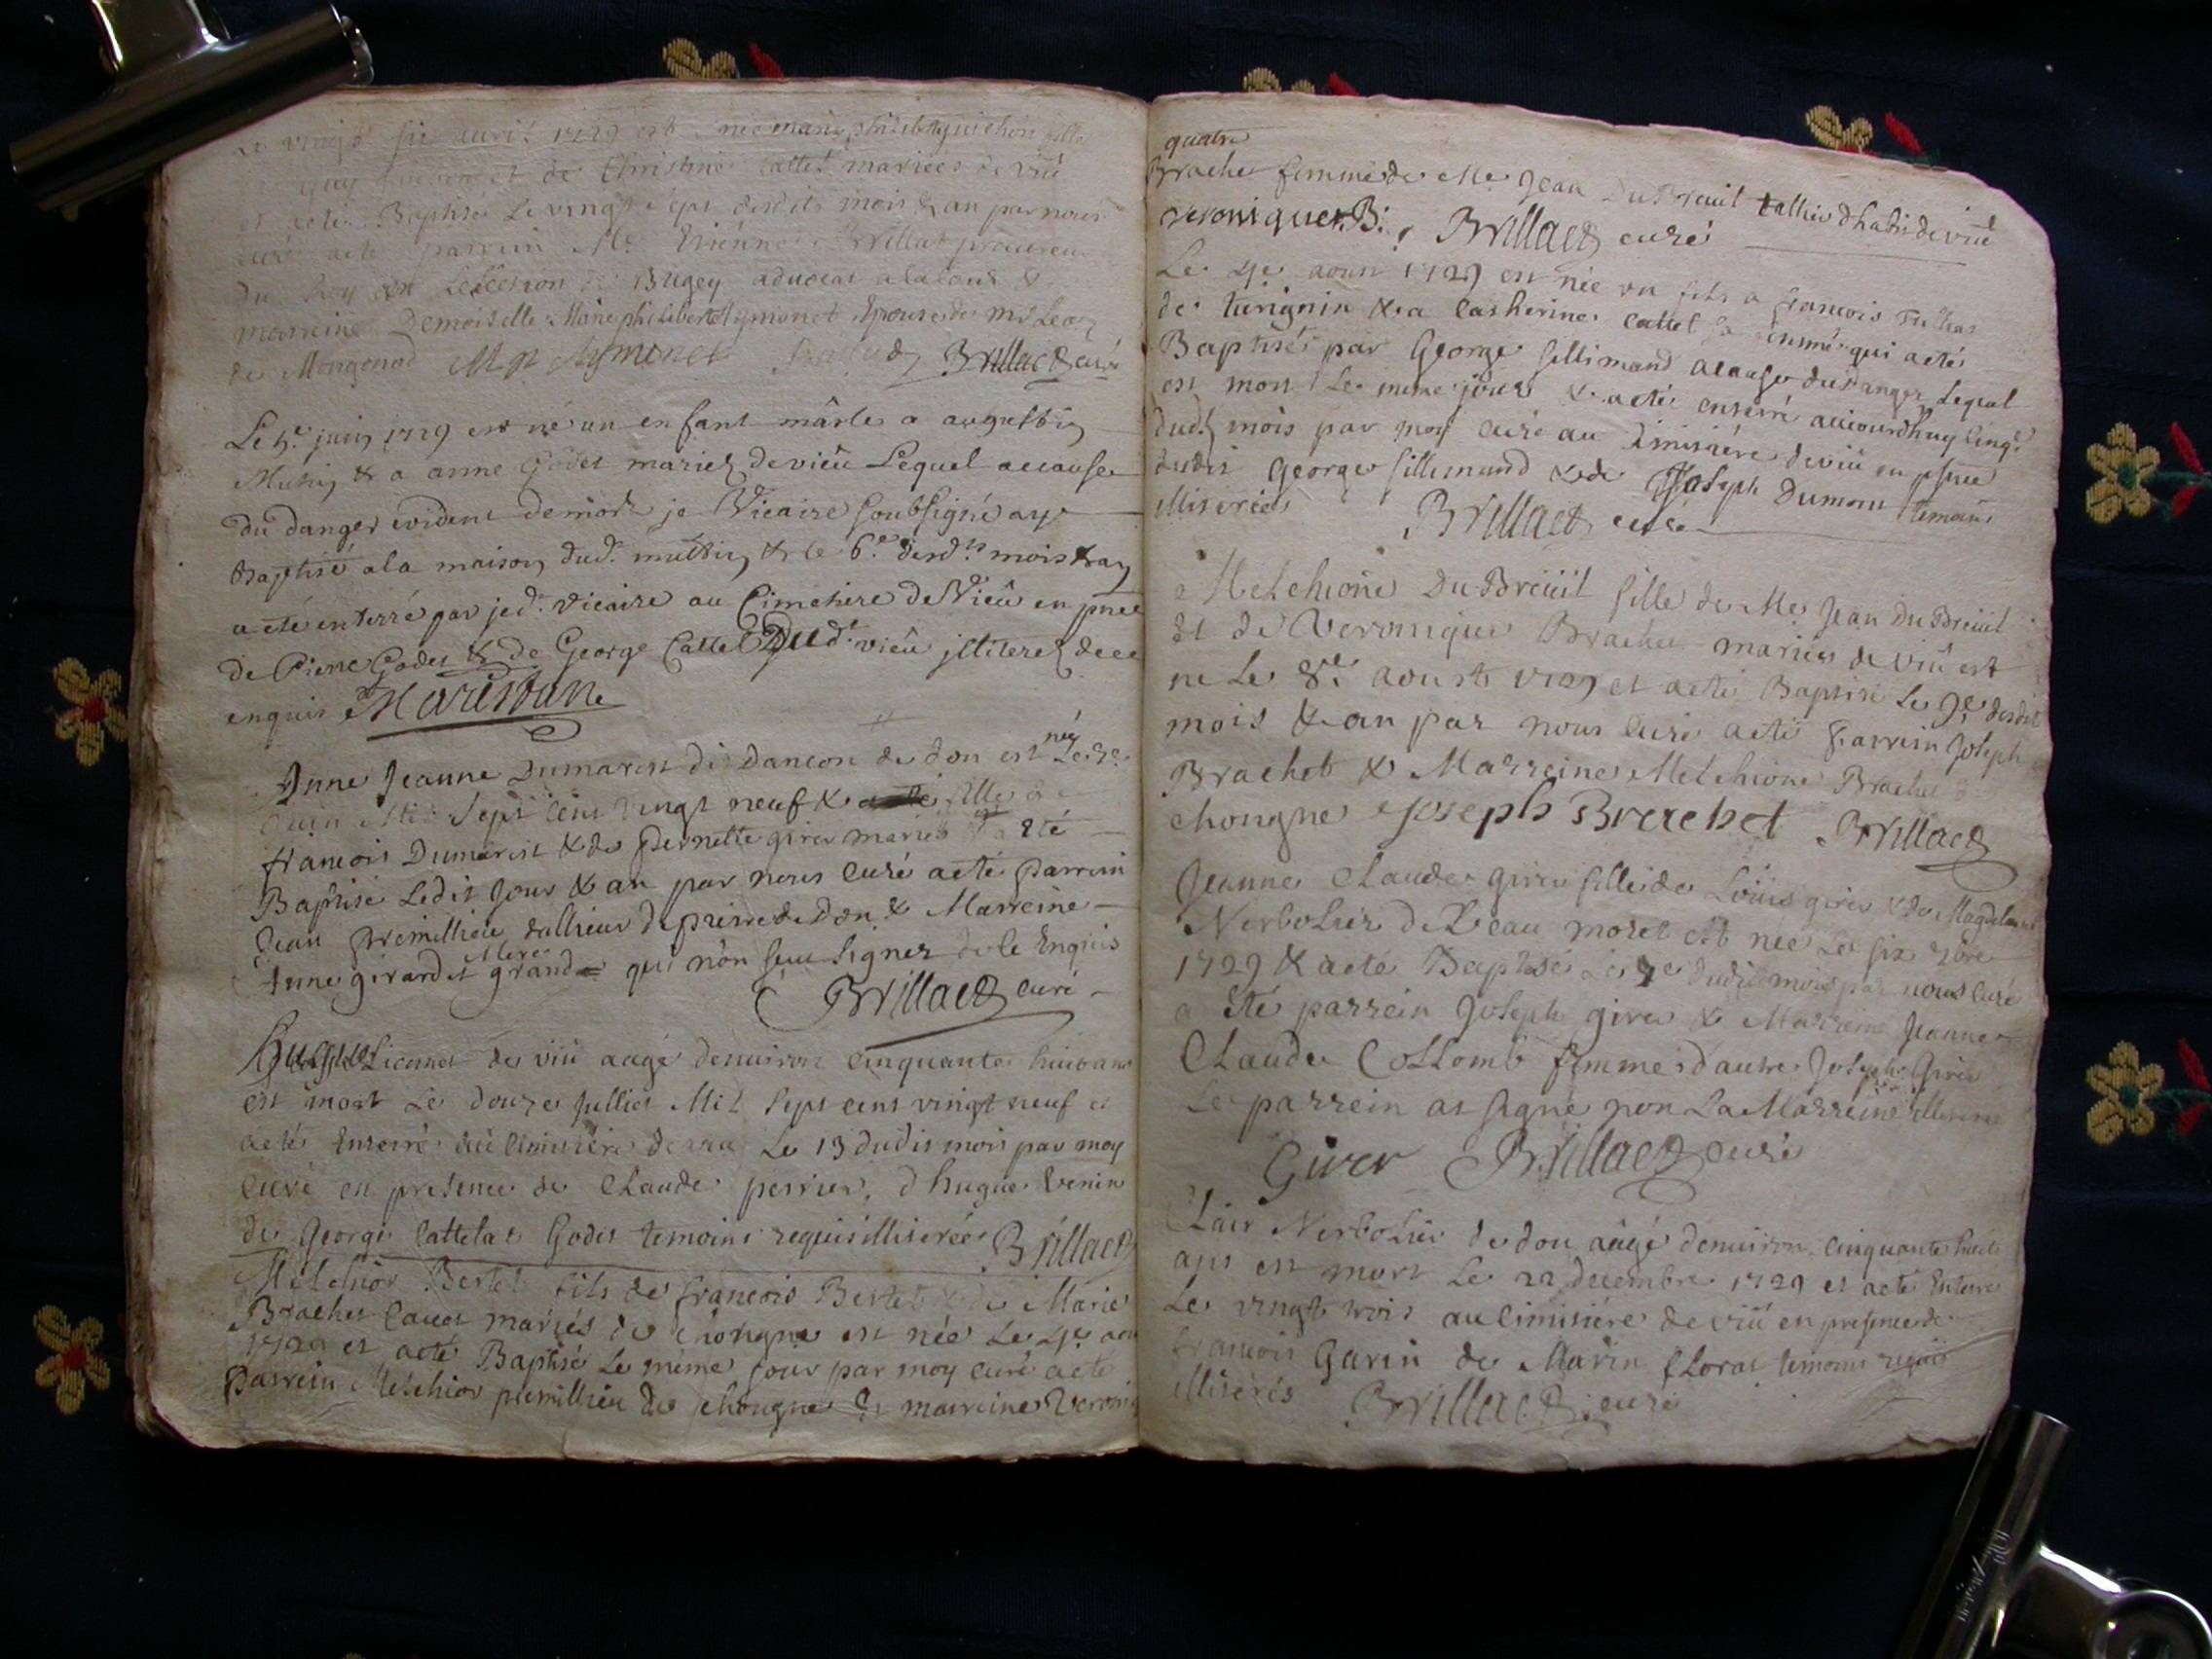 Le vingt six avril 1729 est née marie philiberte guichon fille
de guy guichon et de Christine Cattet mariées de viû
et actée Baptisé Le vingt sept desdits mois & an par nous
curé acte parrein Me Etiénne Brillat procureur
du Roy en Leslection de Bugey aduocat alacour &
marreine Demoiselle Marie philiberte Aymonet Epouse de mr
de Mongonod M p Aymonet Brillact curé
Le 5e juin 1729 est né un enfant mâsle a augustin
& a anne Godet mariez de vieû Lequel acause
du danger evident demort je Vicaire soubsigné ay
Baptisé ala maison dud. & le 6e desdts mois & an
a eté enterré par jed. vicaire au Cimetiere de Vieû en pnce
de Pierre Godet & de George Cattet Dud.t vieû jlliterez dece
enquis
Anne Jeanne Dumarest di Dancon de don est née Le
juin Mil Sept Cent vingt neuf & fille de
francois Dumarest & de Pernette girer mariés & a été
Baptisé Ledit Jour & an par nous curé acté parrein
Jean premillieu tallieur de pierre de Don & Marreine
Anne girardet grand Mere qui n'on sceu signer de le Enquis
Brillact curé
de viû aagé denuiron cinquante huict ans
est mort Le douze Jullict Mil Sept cens vingt neuf et
acté Enterré au cimitiére de viû Le 13 dudit mois par moy
curé en presence de Claude perrier, d'hugue Venin
de George Cattelat Godet temoins requis illiterée Brillact
Melchior Bertet fils de francois Bertet & de Marie
Brachet Cauet mariés de Chongne est née Le 4e aou
1729 et acté Baptisé Le même Jour par moy curé acté
parrein Melchior premillieu de chongne Et marreine Veroniq
quatre
Brachet femme de Me Jean Du Breuil tallieu dhabit de viû
veronique B: Brillact curé
Le 4e aoust 1729 est née vn fils a francois
de turignin & a Catherine Cattet sa femme qui acté
Baptisé par George fillimand acause du danger Lequel
est mort Le même jour & acté enterré auiourdhuy cinqe
dud.t mois par moy curé au Cimitiére de viû en psnce
dudit George fillimand & de Joseph Dumont temoins
illiterées Brillact curé
Melchione Du Breüil fille de Me Jean Du Breüil
Et de Veronique Brachet mariés de viû est
ne Le 8e aoust 1729 et acté Baptisé Le 9e desdit
mois & an par nous curé acté parrein Joseph
Brachet & Marreine Melchione Brachet d
chongne Joseph Brachet Brillact
Jeanne Claude girer fille de Loüis girer & de Magdelaine
Nerbolier de Leau morel est neé Le six 7bre
1729 & acté Baptisé Le 7e dudit mois par nous curé
a été parrein Joseph girer & Marreine Jeanne
Claude Collomb femme d'autre Joseph Girer
Le parrein at signé non La Marreine illiterée
Girer Brillact curé
Clair Nerbolier de don aâgé denuiron cinquante huict
ans est mort Le 22 Decembre 1729 et acté Enterré
Le vingt trois au cimitiére de viû en presence de
francois Garin de Marin floras temoins requis
illiterés Brillact curé